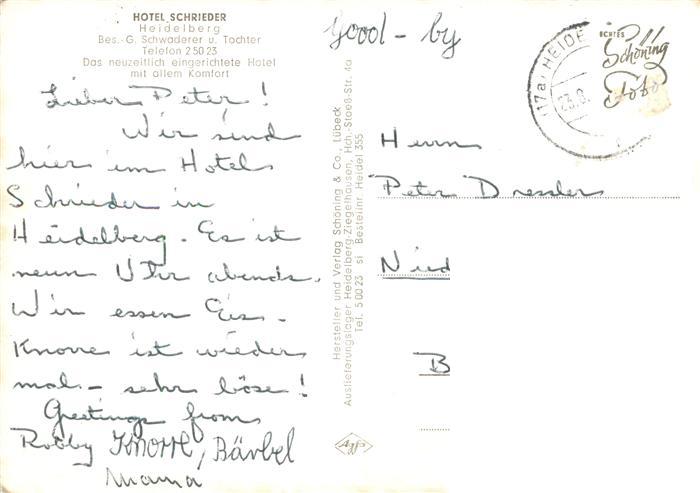 HOTEL SCHRIEDER
Heidelberg
Bes.-G. Schwaderer u. Tochter
Telefon 2 50 23
Das neuzeitlich eingerichtete Hotel
mit allem Komfort
Good - by
Lieber Peter!
Wir sind
hier im Hotel
Schrieder in
Heidelberg. Es ist
neun Uhr abends.
Wir essen Eis.
Knorre ist wieder
mal - sehr böse!
Greetings from
Robby Knorre, Bärbel
Mama
Hersteller und Verlag Schöning & Co., Lübeck
Auslieferungslager Heidelberg-Ziegelhausen, Hch.-Stoeß-Str. 4a
Tel. 5 00 23 si Bestellnr. Heidel 355
Agfa
(17a) HEIDE
23.8.
ECHTES
Schöning
Foto
Herrn
Peter Dressler
Nied
B